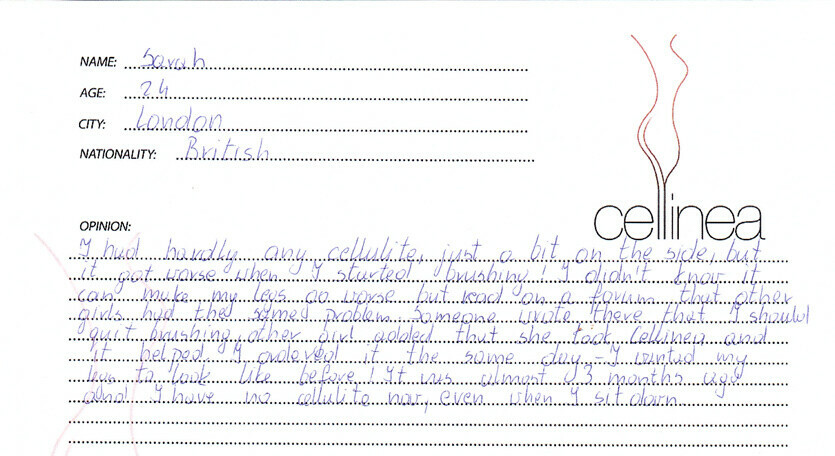 NAME: Sarah
AGE: 24
CITY: London
NATIONALITY: British
cellinea
OPINION:
I had hardly any cellulite, just a bit on the side, but
it got worse when I started brushing! I didn't know it
can make my legs go worse but read on a forum that other
girls had the samed problem. Someone wrote there that I should
quit brushing, other girl added that she took Cellinea and
it helped. I ordered it the same day - I wanted my
legs to look like before! It was almost 3 months ago
and I have no cellulite now, even when I sit down